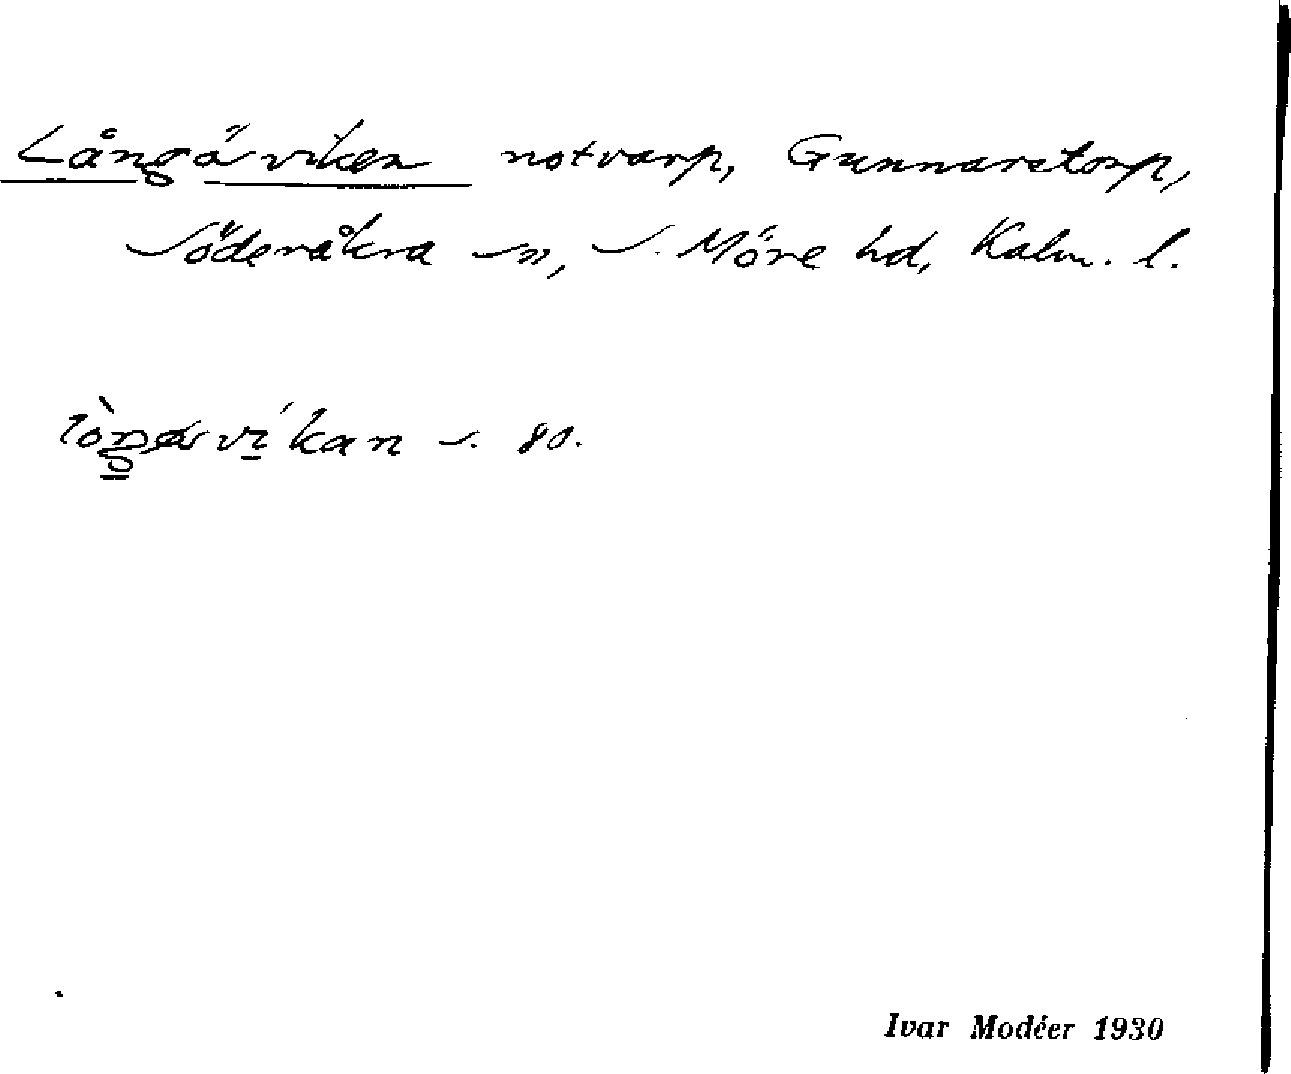 Långörviken notvarp, Gunnarstorp,
Söderåkra sn, S. Möre hd, Kalm. l.
s. 80.
Ivar Modéer 1930